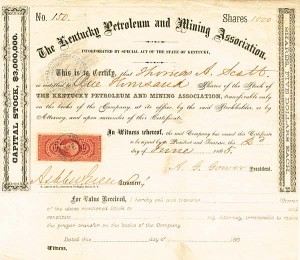 No. 150
Shares 1000
The Kentucky Petroleum and Mining Association.
INCORPORATED BY SPECIAL ACT OF THE STATE OF KENTUCKY.
CAPITAL STOCK, $3,000,000.
This is to Certify, that Thomas A. Scott
is entitled to One Thousand Shares of the Stock of
THE KENTUCKY PETROLEUM AND MINING ASSOCIATION, transferable only
on the books of the Company, at its office, by the said Stockholder, or by
Attorney, and upon surrender of this Certificate.
In Witness whereof, the said Company has caused this Certificate
to be signed by its President and Treasurer, this
day of June 1865.
President.
Treasurer.
For Value Received, hereby sell and transfer
of the above mentioned Stock to
constitute my Attorney irrevocable to make
the proper transfer on the books of the Company.
Dated this day of 186